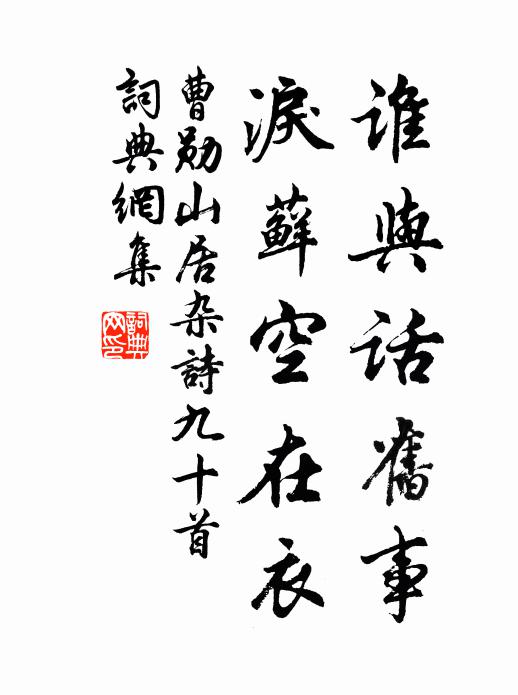 誰與話舊事
淚蘚空在衣
曹勛山居杂詩九十首
詞典網集
詞典网印